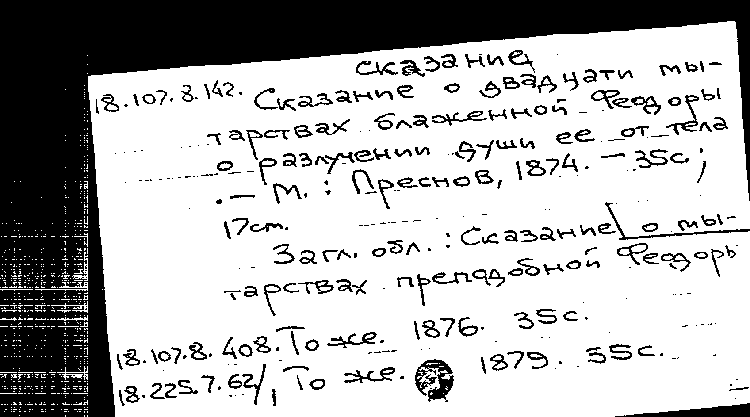 сказание
18.107.8.142. Сказание о двадцати мы-
тарствах блаженной Феодоры
о разлучении души ее от тела
.— М. : Преснов, 1874. — 35с.;
17см.
Загл. обл. : Сказание о мы-
тарствах преподобной Феодоры
18.107.8.408. То же. 1876. 35с.
18.225.7.62/1 То же. 1879. 35с.